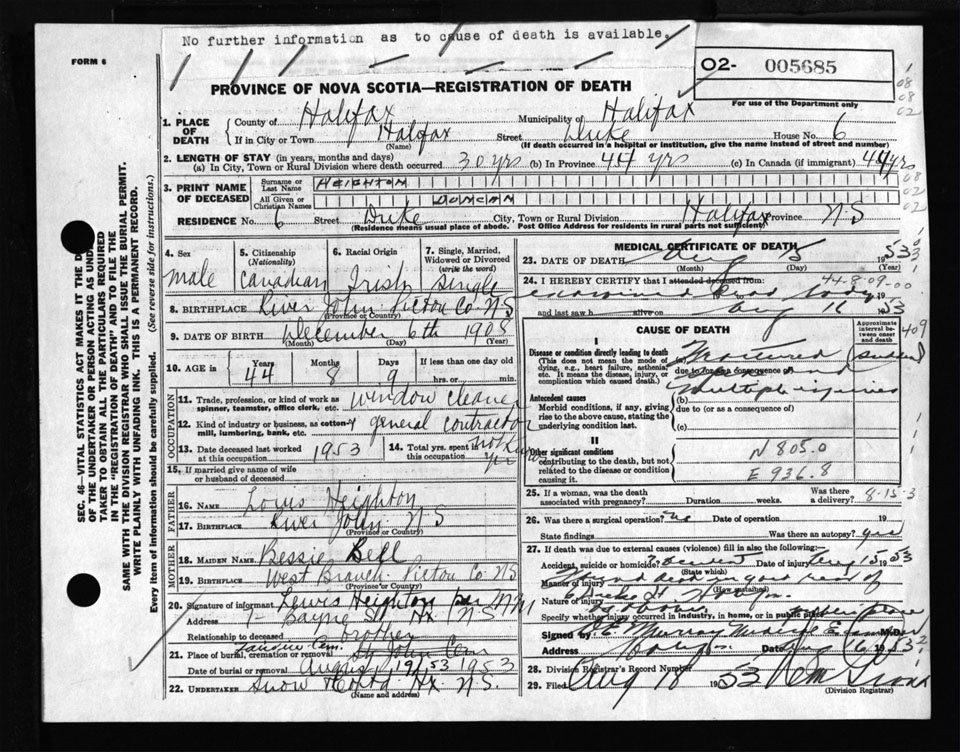 No further information as to cause of death is available.
FORM 6
O2- 005685
For use of the Department only
PROVINCE OF NOVA SCOTIA—REGISTRATION OF DEATH
1. PLACE OF DEATH
County of Halifax Municipality of Halifax
If in City or Town Halifax Street Duke House No. 6
(Name) (If death occurred in a hospital or institution, give the name instead of street and number)
2. LENGTH OF STAY (in years, months and days)
(a) In City, Town or Rural Division where death occurred 30 yrs (b) In Province 44 yrs (c) In Canada (if immigrant) 44 yrs
3. PRINT NAME OF DECEASED
Surname or Last Name HEIGHTON
All Given or Christian Names DUNCAN
RESIDENCE No. 6 Street Duke City, Town or Rural Division Halifax Province N S
(Residence means usual place of abode. Post Office Address for residents in rural parts not sufficient)
4. Sex
male
5. Citizenship (Nationality)
Canadian
6. Racial Origin
Irish
7. Single, Married, Widowed or Divorced (write the word)
Single
8. BIRTHPLACE River John Pictou Co N S
(Province or Country)
9. DATE OF BIRTH December 6th 1908
(Month) (Day) (Year)
10. AGE in Years Months Days If less than one day old
44 8 9 hrs. or min.
OCCUPATION
11. Trade, profession, or kind of work as spinner, teamster, office clerk, etc. window cleaner
12. Kind of industry or business, as cotton-mill, lumbering, bank, etc. general contractor
13. Date deceased last worked at this occupation 1953
14. Total yrs. spent in this occupation
15. If married give name of wife or husband of deceased
FATHER
16. Name Lewis Heighton
17. BIRTHPLACE River John N S
(Province or Country)
MOTHER
18. MAIDEN NAME Bessie Bell
19. BIRTHPLACE West Branch Pictou Co N S
(Province or Country)
20. Signature of informant Lewis Heighton
Address Bayne St Hx N S
Relationship to deceased brother
21. Place of burial, cremation or removal St John Cem
Date of burial or removal August 19 1953 1953
22. UNDERTAKER Snow Hx. N.S.
(Name and address)
MEDICAL CERTIFICATE OF DEATH
23. DATE OF DEATH Aug 15 1953
(Month) (Day) (Year)
24. I HEREBY CERTIFY that I attended deceased from 44-8-09-00
examined dead body 19
and last saw h alive on Aug 19 53
CAUSE OF DEATH
Approximate interval between onset and death
409
I
Disease or condition directly leading to death
(This does not mean the mode of dying, e.g., heart failure, asthenia, etc. It means the disease, injury, or complication which caused death.)
(a) Fractured
sudden
due to (or as a consequence of)
Antecedent causes
Morbid conditions, if any, giving rise to the above cause, stating the underlying condition last.
Multiple injuries
(b)
due to (or as a consequence of)
(c)
II
Other significant conditions
contributing to the death, but not related to the disease or condition causing it.
N 805.0
E 936.8
25. If a woman, was the death associated with pregnancy? Duration weeks. Was there a delivery? 8-15-3
26. Was there a surgical operation? no Date of operation 19
State findings Was there an autopsy? yes
27. If death was due to external causes (violence) fill in also the following:-
Accident, suicide or homicide? Date Aug 15 1953
(State which)
Manner of injury Found dead in rear of
(How sustained)
Nature of injury 6 Duke St
Specify whether injury occurred in industry, in home, or in public place
Signed by Murray M.D.
Address Date Aug 1953
28. Division Registrar's Record Number
29. Filed Aug 18 1953
(Division Registrar)
SEC. 46—VITAL STATISTICS ACT MAKES IT THE D
OF THE UNDERTAKER OR PERSON ACTING AS UND
TAKER TO OBTAIN ALL THE PARTICULARS REQUIRED
IN THE "REGISTRATION OF DEATH" AND TO FILE THE
SAME WITH THE DIVISION REGISTRAR WHO SHALL ISSUE THE BURIAL PERMIT.
WRITE PLAINLY WITH UNFADING INK. THIS IS A PERMANENT RECORD.
Every item of information should be carefully supplied. (See reverse side for instructions.)